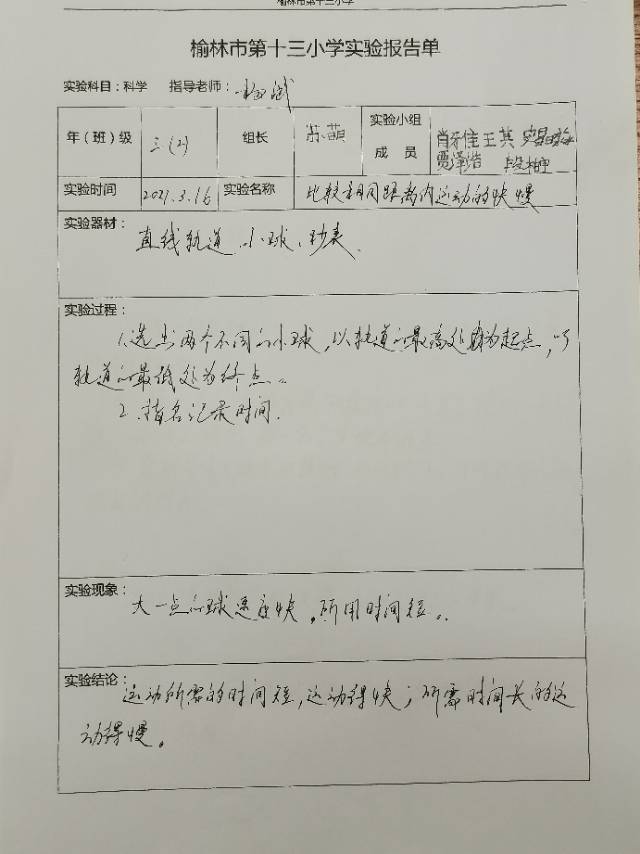 榆林市第十三小学
榆林市第十三小学实验报告单
实验科目：科学 指导老师：
年（班）级 三(2) 组长 苏萌 实验小组成员 肖牙佳 王其
贾泽浩
实验时间 2021.3.16 实验名称 比较相同距离内运动的快慢
实验器材：
直线轨道、小球、秒表
实验过程：
1.选出两个不同的小球，以轨道的最高处为起点，以
轨道的最低处为终点。
2.指名记录时间.
实验现象：
大一点的球速度快，所用时间短。
实验结论：
运动所需的时间短，运动得快；所需时间长的运
动得慢。